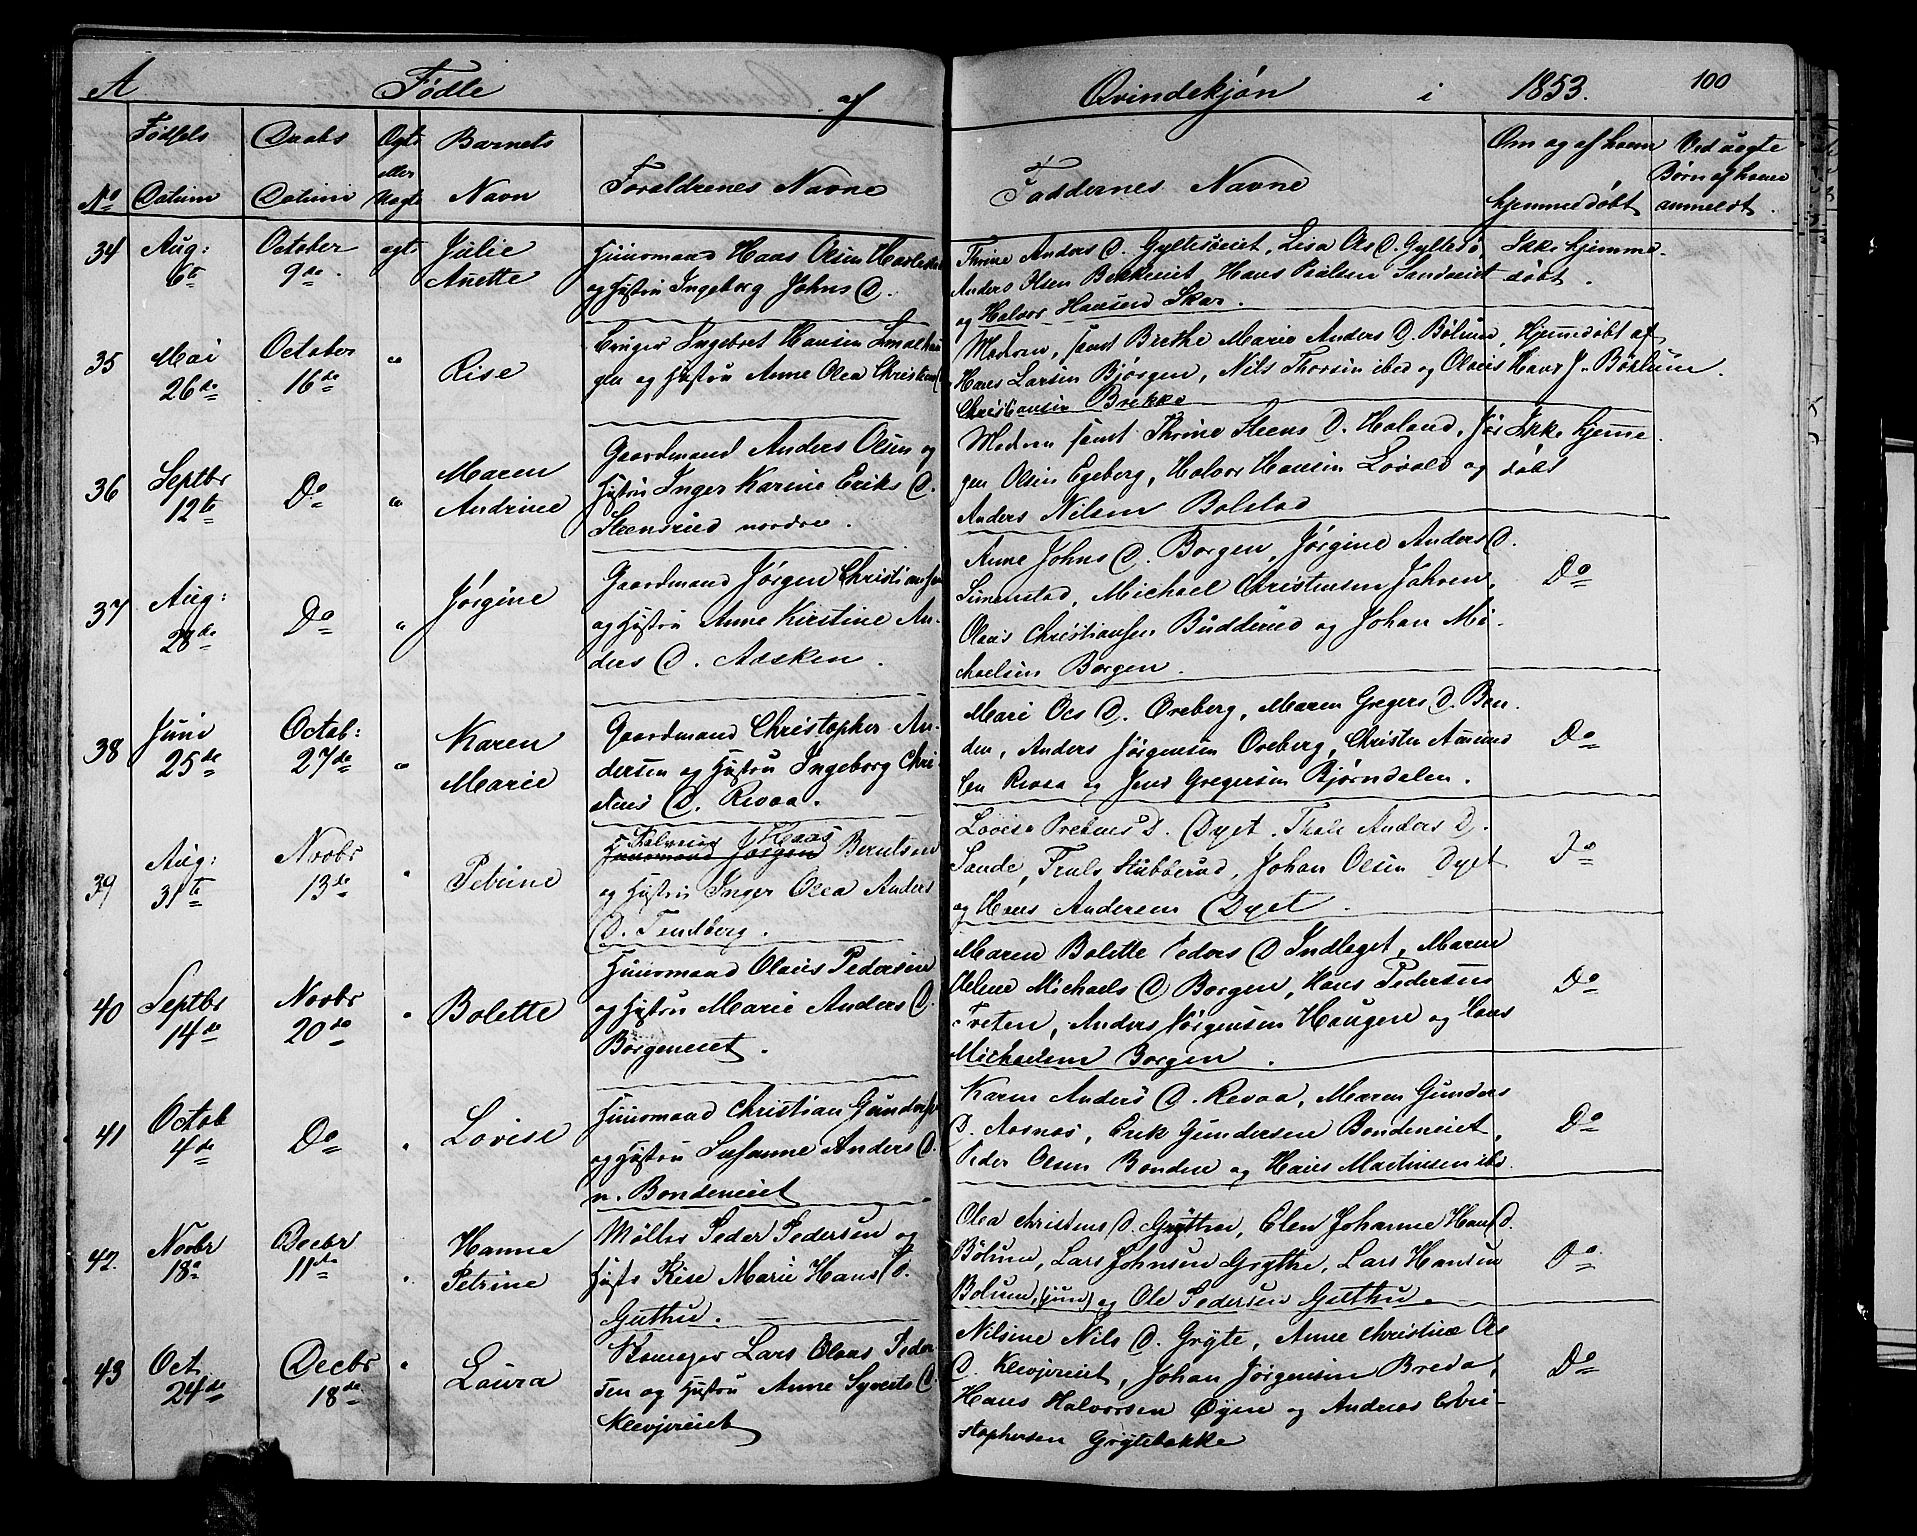 A Fødte af Qvindekjøn i 1853. 100
No Fødsels Datum Daabs Datum Ægte eller Uægte Barnets Navn Forældrenes Navne Faddernes Navne Om og af hvem hjemmedøbt Ved uægte Børn af hvem anmeldt.
34 Aug: 6te October 9de egte Julie Anette
Huusmand Hans Olsen
og Hustru Ingeborg Johns D.
Thrine Anders D. Gyltesøeiet, Lisa Ols D. Gyltesø,
Anders Olsen Bekkeiet, Hans Paulsen Sandveiet
og Halvor Hansen Skar.
Ikke hjemme
døbt.
35 Mai 26de October 16de " Rise
Bruger Ingebret Hansen
og Hustru Anne Olea Christens D
Modren, samt Berthe Marie Anders D. Bølum,
Hans Larsen Bjørgen, Nils Thorsen ibid og Olaus
Christiansen Brekke
Hjemmedøbt af
Hans J. Bølum.
36 Septbr 12te Do " Maren Andrine
Gaardmand Anders Olsen og
Hustru Inger Karine Eriks D.
Steensrud nordre.
Modren samt Thrine Steens D. Holand, Jør
gen Olsen Egeberg, Halvor Hansen Lövald og
Anders Nilsen Bolstad
Ikke hjemme
døbt
37 Aug: 28de Do " Jørgine
Gaardmand Jørgen Christiansen
og Hustru Anne Kirstine An-
ders D. Asken.
Anne Johns D. Borgen, Jørgine Anders D.
Simenstad, Michael Christensen Jahren,
Olaus Christiansen Budderud og Johan Mi-
chaelsen Borgen.
Do
38 Juni 25de Octob: 27de " Karen Marie
Gaardmand Christopher An-
dersen og Hustru Ingeborg Chri-
stens D. Revaa.
Mari Ols D. Oreberg, Maren Gregers D. Bon
den, Anders Jørgensen Oreberg, Christen Amund
sen Revaa og Jens Gregersen Bjørndalen.
Do
39 Aug: 31te Novbr 13de " Petrine
Hans
Huusmand Jørgen Berntsen
og Hustru Inger Olea Anders
D. Tendberg.
Lovise Prebens D. Dyet. Thale Anders D.
Sande, Truls Stubberud, Johan Olsen Dyet
og Hans Andersen Dyet.
Do
40 Septbr 14de Novbr 20de " Bolette
Huusmand Olaus Pedersen
og Hustru Marie Anders D.
Borgeneiet.
Maren Bolette Peders D Indlaget, Maren
Helene Michaels D Borgen, Hans Pedersen
Treten, Anders Jørgensen Haugen og Hans
Michaelsen Borgen.
Do
41 Octob 4de Do " Lovise
Huusmand Christian Gundersen
og Hustru Susanne Anders D.
n. Bondeneiet
Karen Anders D. Revaa, Maren Gunders
D. Aasnæs, Erik Gundersen Bondeneiet,
Peder Olsen Bonden og Hans Martinsen ibd.
Do
42. Novbr 18de Decbr 11te " Hanna Petrine
Møller Peder Pedersen og
Hustr Rise Marie Hans D.
Guthu.
Olea Christens D. Grythe, Elen Johanne Hans D.
Bølum, Lars Johnsen Grythe, Lars Hansen
Bølum, (jun) og Ole Pedersen Guthu.
Do.
43 Oct. 24de Decbr 18de " Laura
Skomager Lars Olaus Peder-
sen og Hustru Anne Syverts D.
Klevjereiet
Nilsine Nils D. Gryte, Anne Christine Ols
D. Klevjereiet, Johan Jørgensen Breda,
Hans Halvorsen Øyen og Andreas Chri-
stophersen Grytebakke
Do